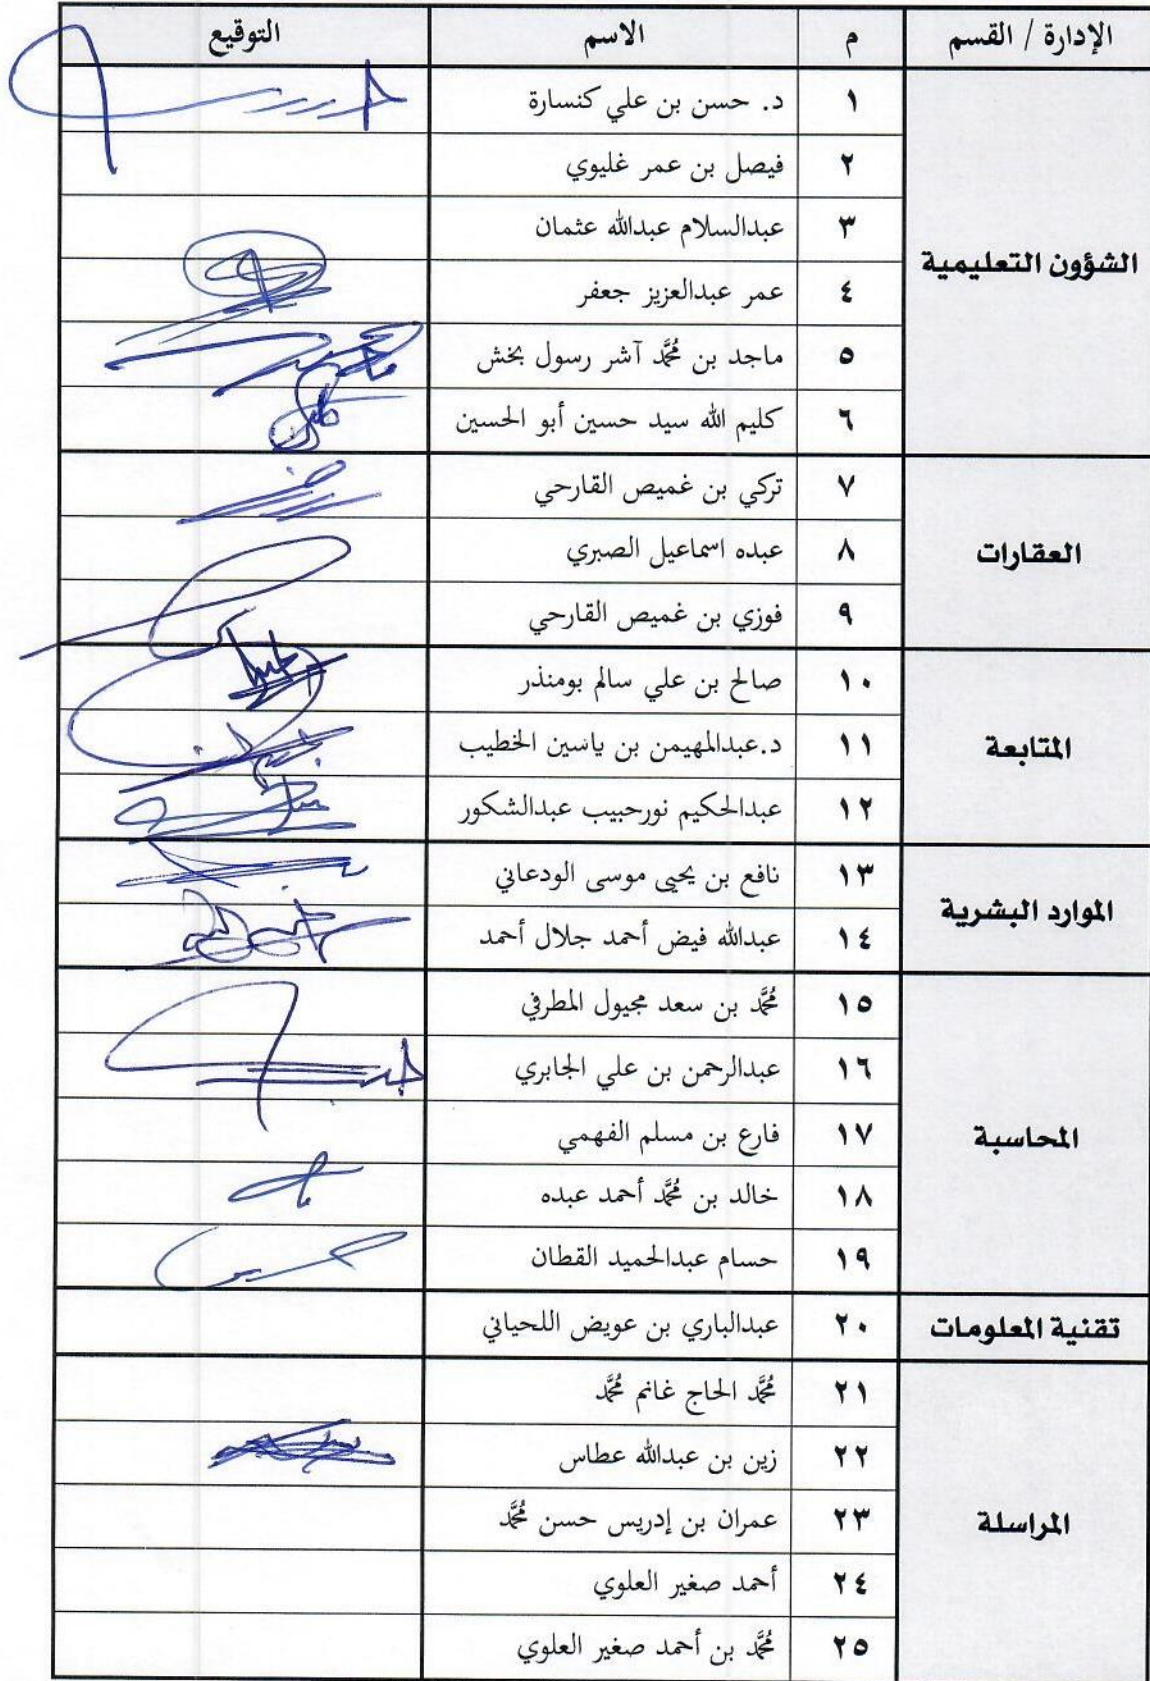 الإدارة / القسم م الاسم التوقيع
الشؤون التعليمية
١ د. حسن بن علي كنسارة
٢ فيصل بن عمر غليوي
٣ عبدالسلام عبدالله عثمان
٤ عمر عبدالعزيز جعفر
٥ ماجد بن محمد آشر رسول بخش
٦ كليم الله سيد حسين أبو الحسين
العقارات
٧ تركي بن غميص القارحي
٨ عبده اسماعيل الصبري
٩ فوزي بن غميص القارحي
المتابعة
١٠ صالح بن علي سالم بومنذر
١١ د.عبدالمهيمن بن ياسين الخطيب
١٢ عبدالحكيم نورحبيب عبدالشكور
الموارد البشرية
١٣ نافع بن يحيى موسى الودعاني
١٤ عبدالله فيض أحمد جلال أحمد
المحاسبة
١٥ محمد بن سعد مجيول المطرفي
١٦ عبدالرحمن بن علي الجابري
١٧ فارع بن مسلم الفهمي
١٨ خالد بن محمد أحمد عبده
١٩ حسام عبدالحميد القطان
تقنية المعلومات
٢٠ عبدالباري بن عويض اللحياني
المراسلة
٢١ محمد الحاج غانم محمد
٢٢ زين بن عبدالله عطاس
٢٣ عمران بن إدريس حسن محمد
٢٤ أحمد صغير العلوي
٢٥ محمد بن أحمد صغير العلوي